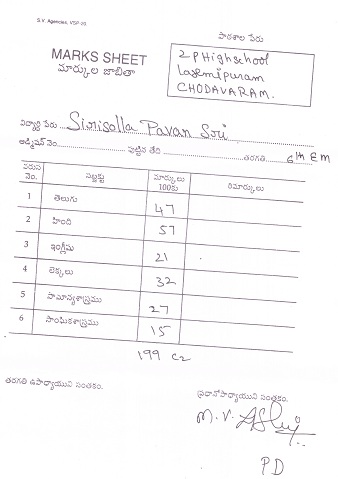 S.V. Agencies, VSP-20
పాఠశాల పేరు
MARKS SHEET
మార్కుల జాబితా
Z P Highschool
Laxmipuram
CHODAVARAM.
విద్యార్థి పేరు. Sirisolla Pavan Sri
అడ్మిషన్ నెం. పుట్టిన తేది తరగతి 6th E m
వరుస నెం. సబ్జక్టు మార్కులు 100కు రిమార్కులు
1 తెలుగు 47
2 హింది 57
3 ఇంగ్లీషు 21
4 లెక్కలు 32
5 సామాన్యశాస్త్రము 27
6 సాంఘికశాస్త్రము 15
199 C2
తరగతి ఉపాధ్యాయుని సంతకం.
ప్రధానోపాధ్యాయుని సంతకం.
M. V.
PD